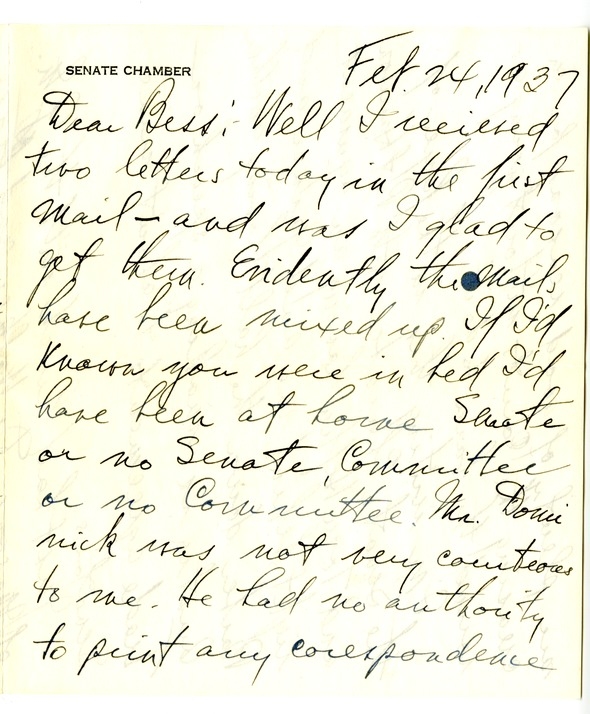 SENATE CHAMBER
Feb. 24, 1937
Dear Bess:- Well I received
two letters today in the first
mail - and was I glad to
get them. Evidently the mails
have been mixed up. If I'd
known you were in bed I'd
have been at home Senate
or no Senate, Committee
or no Committee. Mr. Domi
nick was not very courteous
to me. He had no authority
to print any corespondence